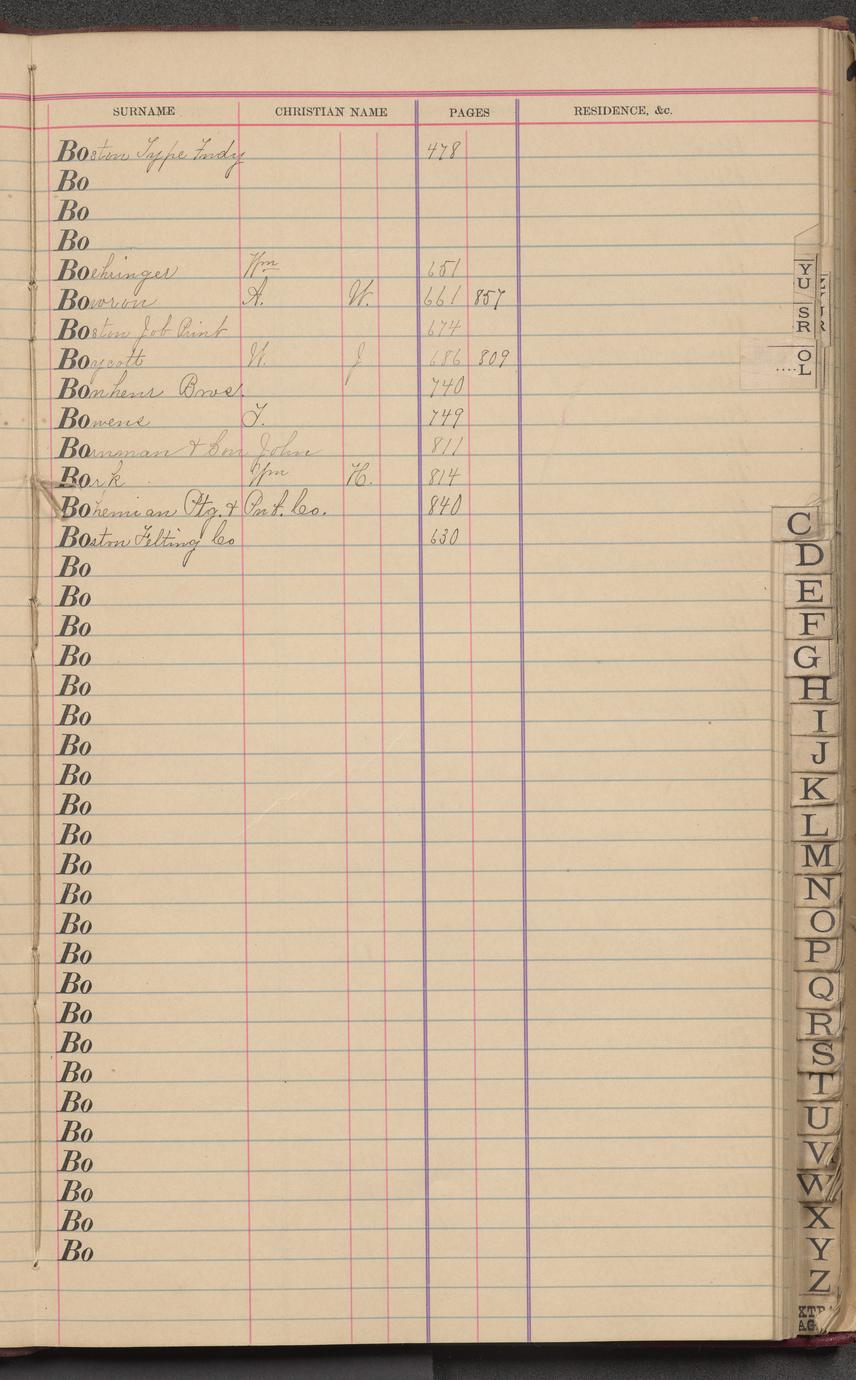 SURNAME CHRISTIAN NAME PAGES RESIDENCE, &c.
Boston Type Fndy 478
Bo
Bo
Bo
Boehringer Wm 651
Bowron A. W. 661 857
Boston Job Print 674
Boycott W. J 686 809
Bonheur Bros. 740
Bowens T. 749
Bowman & Son John 811
Bork Wm H. 814
Bohemian Ptg. & Pub. Co. 840
Boston Felting Co 630
Bo
Bo
Bo
Bo
Bo
Bo
Bo
Bo
Bo
Bo
Bo
Bo
Bo
Bo
Bo
Bo
Bo
Bo
Bo
Bo
Bo
Bo
Bo
Bo
YU
SR
OL
C
D
E
F
G
H
I
J
K
L
M
N
O
P
Q
R
S
T
U
V
W
X
Y
Z